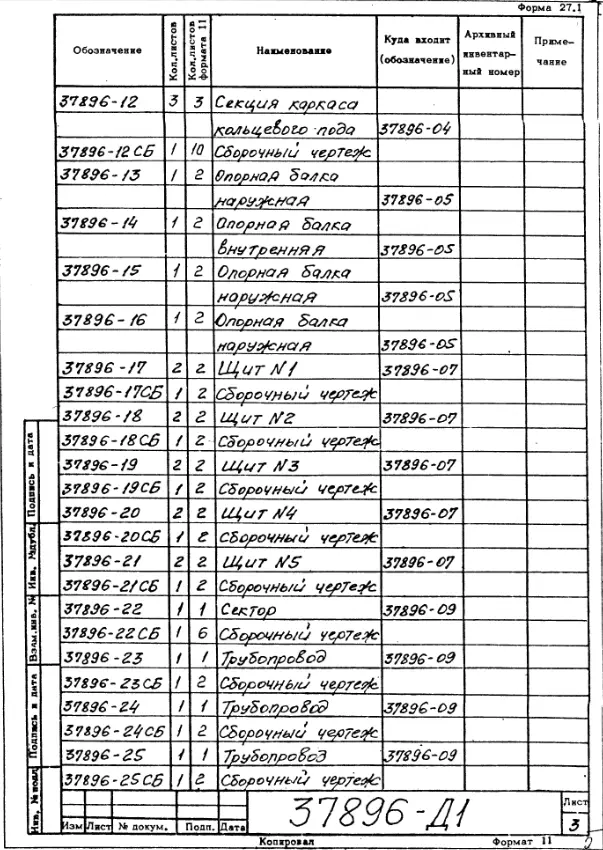 Форма 27.1
Обозначение Кол.листов Кол.листов формата 11 Наименование Куда входит (обозначение) Архивный инвентарный номер Примечание
37896-12 3 3 Секция каркаса
кольцевого пода 37896-04
37896-12 СБ 1 10 Сборочный чертеж
37896-13 1 2 Опорная балка
наружная 37896-05
37896-14 1 2 Опорная балка
внутренняя 37896-05
37896-15 1 2 Опорная балка
наружная 37896-05
37896-16 1 2 Опорная балка
наружная 37896-05
37896-17 2 2 Щит N1 37896-07
37896-17СБ 1 2 Сборочный чертеж
37896-18 2 2 Щит N2 37896-07
37896-18СБ 1 2 Сборочный чертеж
37896-19 2 2 Щит N3 37896-07
37896-19СБ 1 2 Сборочный чертеж
37896-20 2 2 Щит N4 37896-07
37896-20СБ 1 2 Сборочный чертеж
37896-21 2 2 Щит N5 37896-07
37896-21СБ 1 2 Сборочный чертеж
37896-22 1 1 Сектор 37896-09
37896-22СБ 1 6 Сборочный чертеж
37896-23 1 1 Трубопровод 37896-09
37896-23СБ 1 2 Сборочный чертеж
37896-24 1 1 Трубопровод 37896-09
37896-24СБ 1 2 Сборочный чертеж
37896-25 1 1 Трубопровод 37896-09
37896-25СБ 1 2 Сборочный чертеж
Подпись и дата
Инв. №дубл.
Взам.инв. №
Подпись и дата
Инв. №подл
Изм Лист № докум. Подп. Дата
37896-Д1
Лист
3
Копировал Формат 11